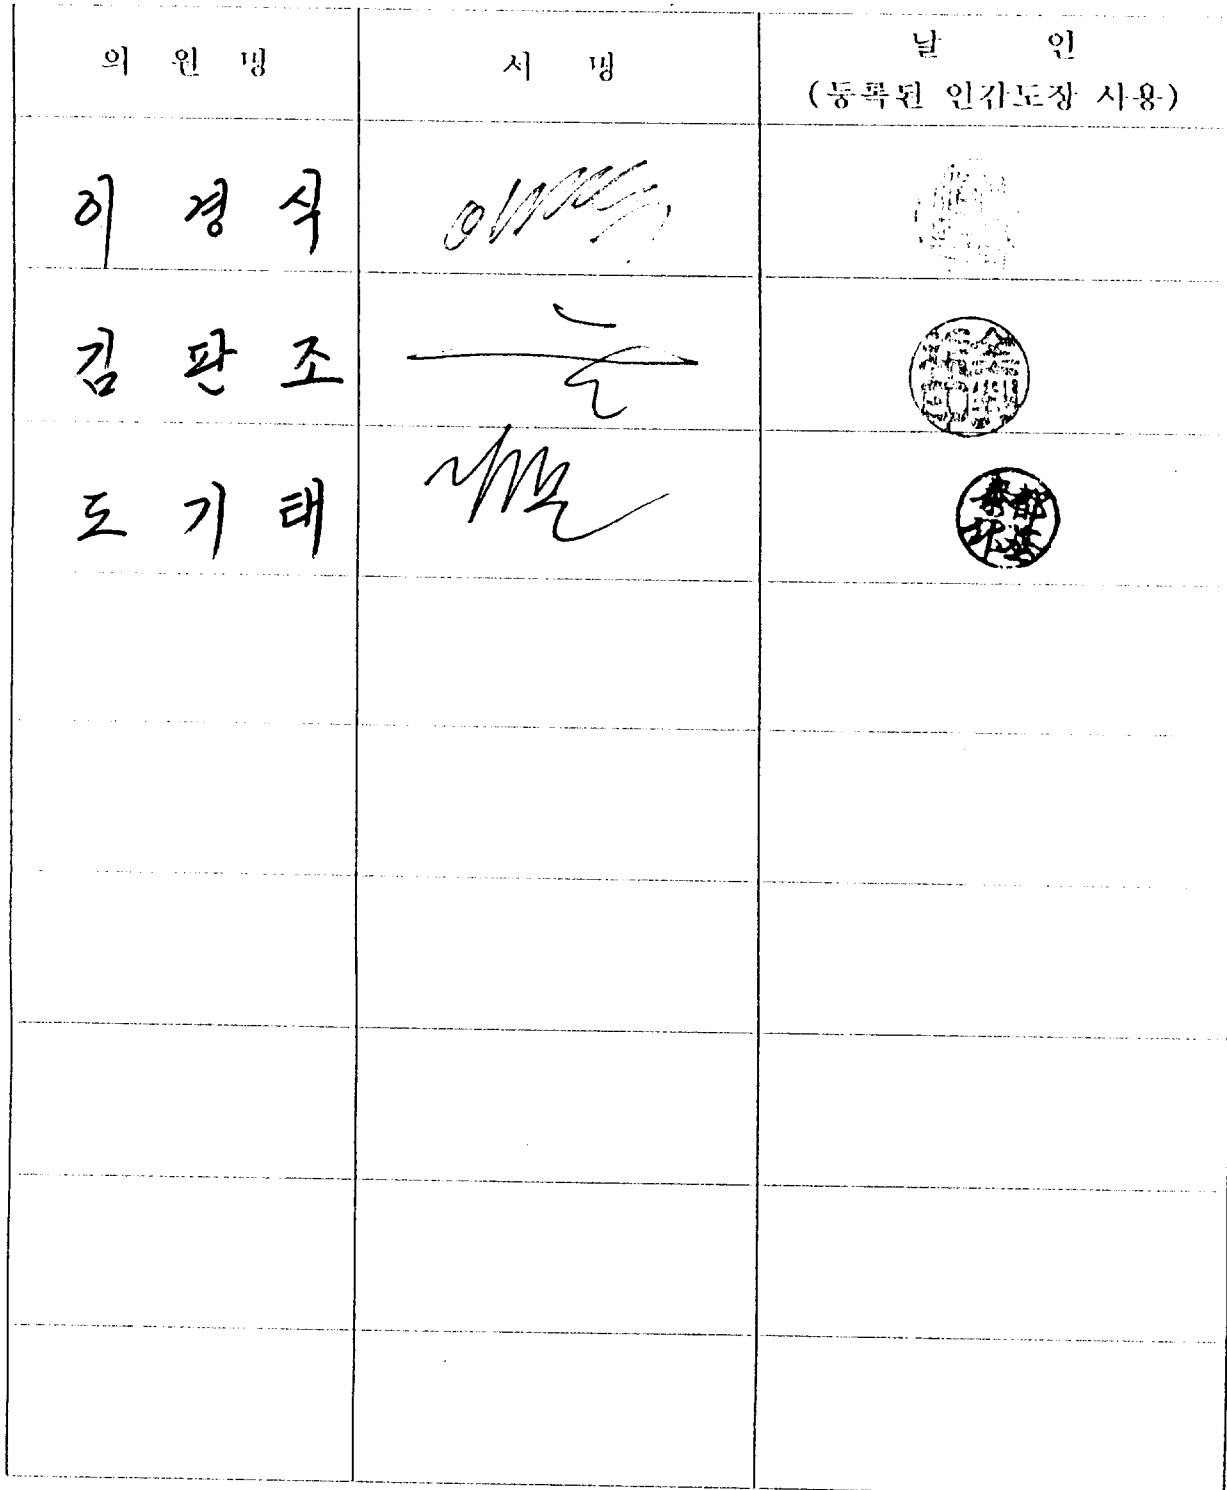 의 원 명 서 명 날 인
(등록된 인감도장 사용)
이 경 식
김 판 조
도 기 태